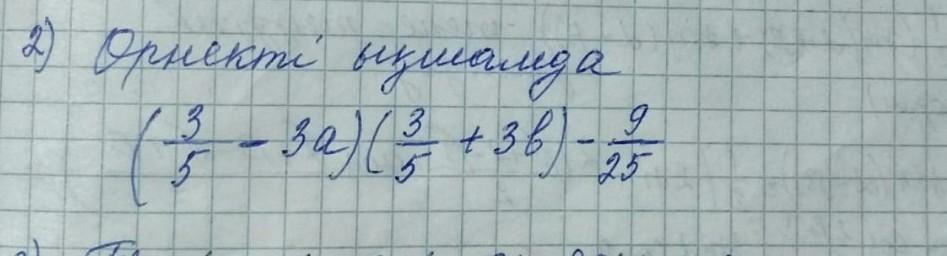 2) Орнекті ықшамда
(3/5 - 3a)(3/5 + 3b) - 9/25